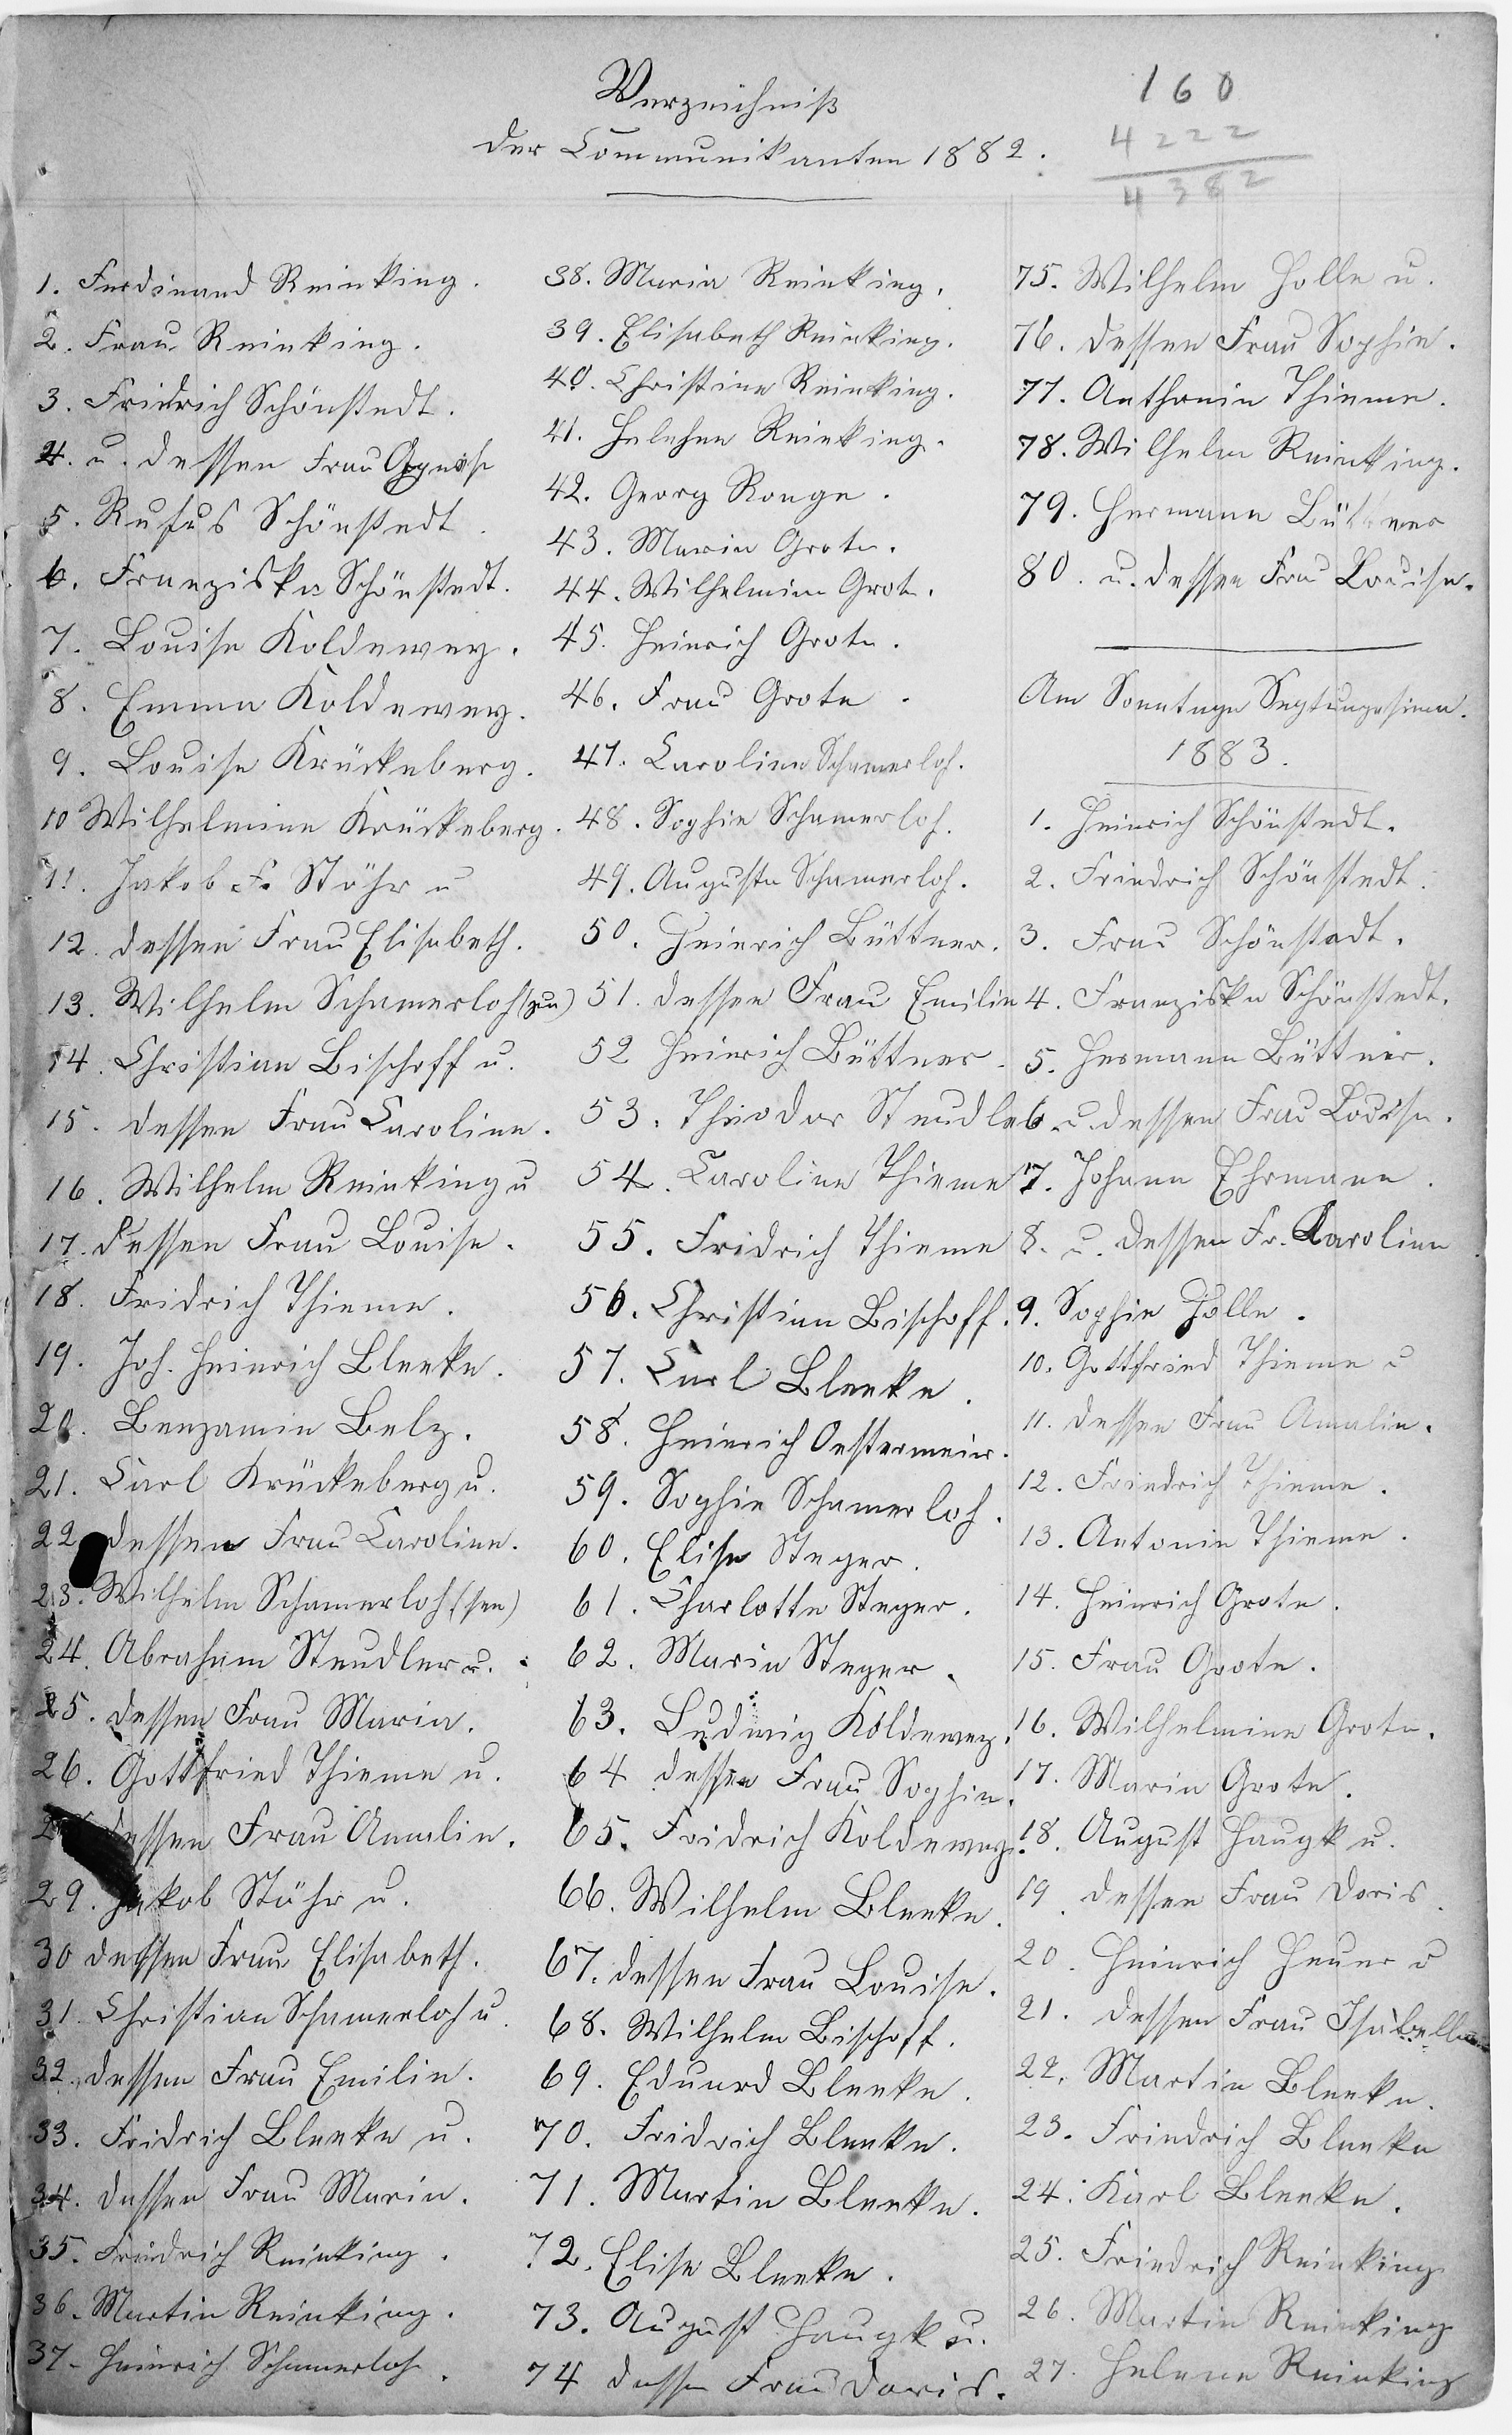 Verzeichniß
der Communikanten 1882.
160
4222
4382
1. Ferdinand Reinking.
2. Frau Reinking.
3. Friedrich Schönstedt.
4. u. dessen Frau Agnese
5. Rufus Schönstedt.
6. Franziska Schönstedt.
7. Louise Koldewey.
8. Emma Koldewey.
9. Louise Krückeberg.
10 Wilhelmine Krückeberg.
11. Jakob F. Stöhr u
12. dessen Frau Elisabeth.
13. Wilhelm Schamerloh (jun)
14. Christian Bischoff u.
15. dessen Frau Caroline.
16. Wilhelm Reinking u
17. dessen Frau Louise.
18. Fridrich Thieme.
19. Joh. Heinrich Bleeke.
20. Benjamin Belz.
21. Carl Krückeberg u.
22. dessen Frau Caroline.
23. Wilhelm Schamerloh (sen)
24. Abraham Steudler u.
25. dessen Frau Maria.
26. Gottfried Thieme u.
dessen Frau Amalie.
29. Jakob Stöhr u.
30 dessen Frau Elisabeth.
31. Christian Schamerloh u.
32. dessen Frau Emilie.
33. Fridrich Bleeke u.
34. dessen Frau Marie.
35. Friedrich Reinking.
36. Martin Reinking.
37. Heinrich Schamerloh.
38. Maria Reinking.
39. Elisabeth Reinking.
40. Christine Reinking.
41. Helehne Reinking.
42. Georg Ronge.
43. Marie Grote.
44. Wilhelmine Grote.
45. Heinrich Grote.
46. Frau Grote.
47. Caroline Schamerloh.
48. Sophie Schamerloh.
49. Auguste Schamerloh.
50. Heinrich Büttner.
51. dessen Frau Emilie
52 Heinrich Büttner.
53. Theodor Steudler
54. Caroline Thieme
55. Fridrich Thieme
56. Christian Bischoff.
57. Carl Bleeke.
58. Heinrich Oestermeier.
59. Sophie Schamerloh.
60. Elise Steger.
61. Charlotte Steger.
62. Maria Steger.
63. Ludwig Koldewey.
64 dessen Frau Sophie.
65. Fridrich Koldewey.
66. Wilhelm Bleeke.
67. dessen Frau Louise.
68. Wilhelm Bischoff.
69. Eduard Bleeke.
70. Fridrich Bleeke.
71. Martin Bleeke.
72. Elise Bleeke.
73. August Haugk u.
74 dessen Frau Doris.
75. Wilhelm Holle u.
76. dessen Frau Sophie.
77. Anthonie Thieme.
78. Wilhelm Reinking.
79. Hermann Büttner
80. u. dessen Frau Louise.
Am Sonntage Septuagesima.
1883.
1. Heinrich Schönstedt.
2. Friedrich Schönstedt.
3. Frau Schönstadt.
4. Franziska Schönstedt.
5. Hermann Büttner.
6. u. dessen Frau Louise.
7. Johann Ehrmann.
8. u. dessen Fr. Karoline
9. Sophie Holle.
10. Gottfried Thieme u
11. dessen Frau Amalie.
12. Friedrich Thieme.
13. Antonie Thieme.
14. Heinrich Grote.
15. Frau Grote.
16. Wilhelmine Grote.
17. Marie Grote.
18. August Haugk u.
19. dessen Frau Doris.
20. Heinrich Heuer u
21. dessen Frau Isabella
22. Martin Bleeke.
23. Friedrich Bleeke
24. Karl Bleeke.
25. Friedrich Reinking
26. Martin Reinking
27. Helene Reinking